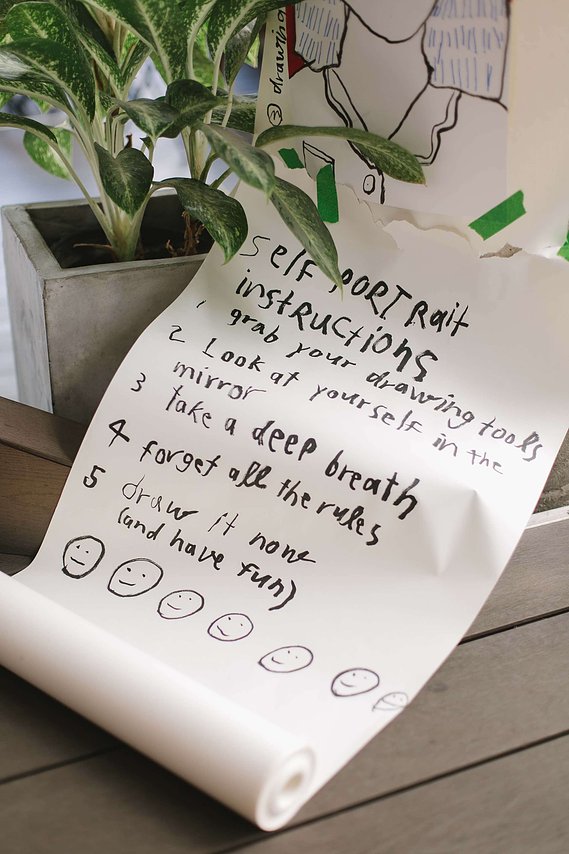 ③ drawing
Self PORTRait
instRuctions
1 grab your drawing tools
2 Look at yourself in the
mirror
3 Take a deep breath
4 forget all the rules
5 draw it none
(and have fun)